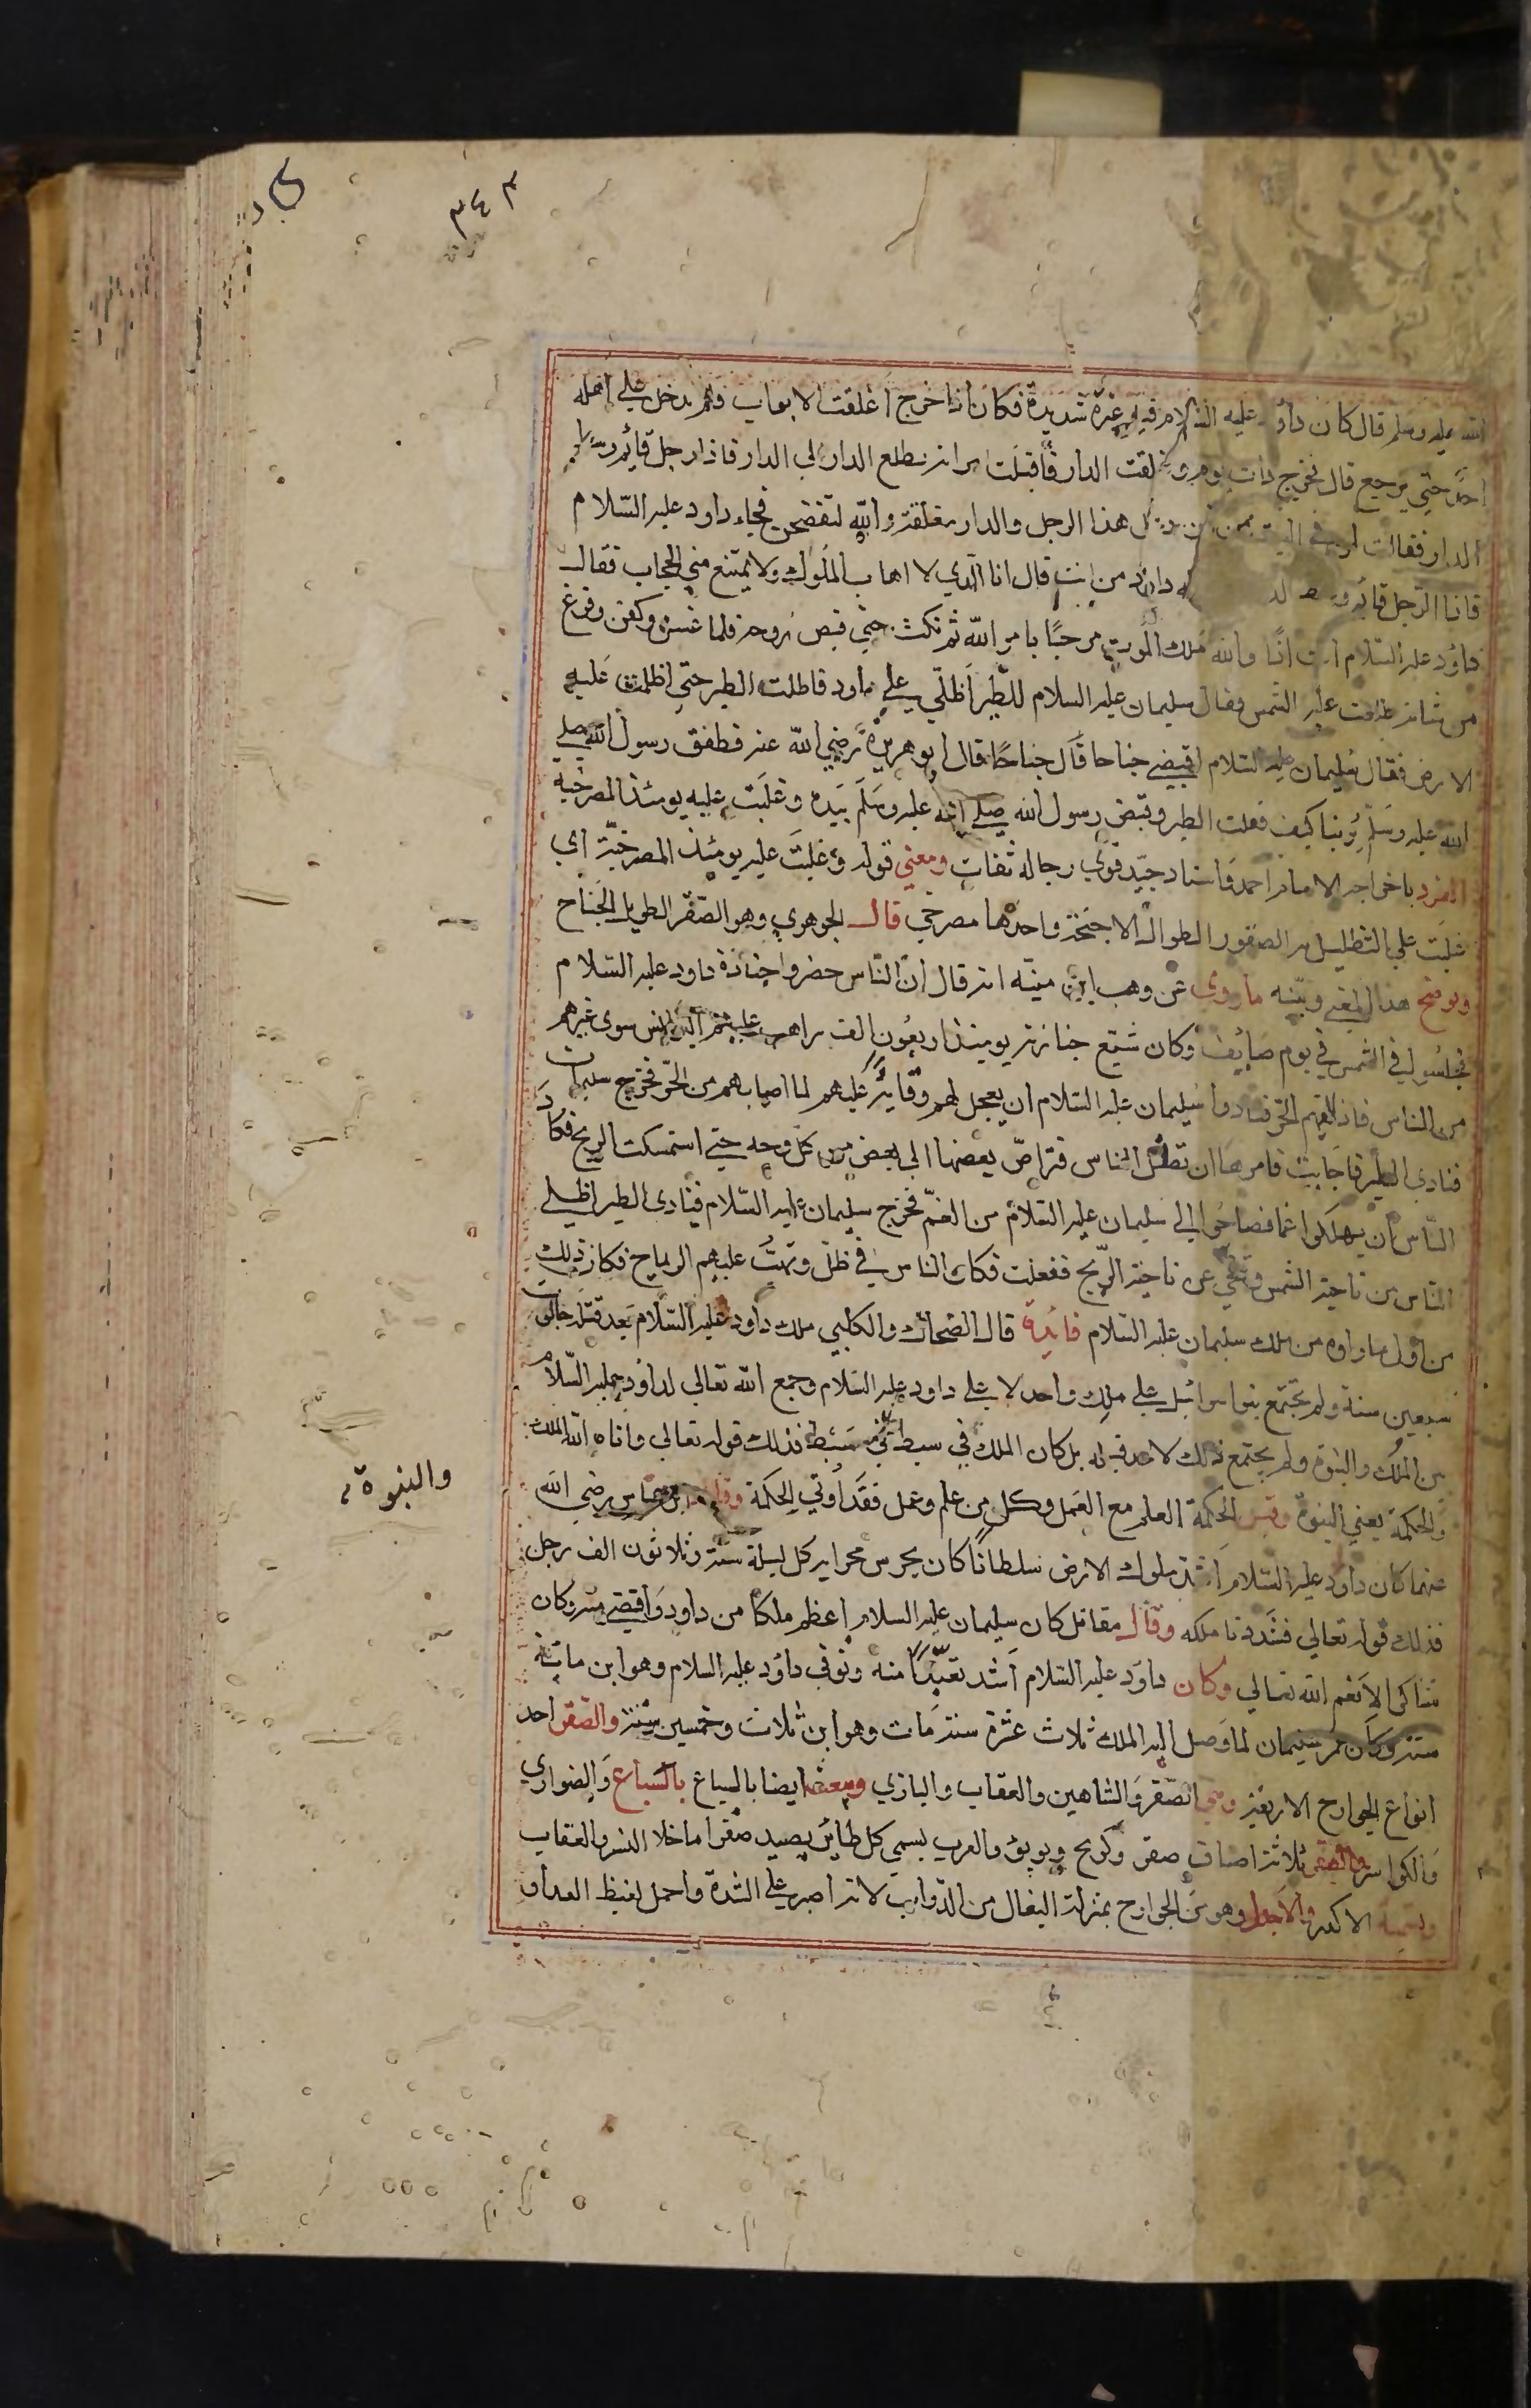 ٣٤٣
الله عليه وسلم قال كان داود عليه السلام فيه غيرة شديدة فكان اذا خرج اغلقت الابواب فلم يدخل على اهله
احد حتي يرجع قال فخرج ذات يوم وغلقت الدار فاقبلت امراته تطلع الي الدار فاذا رجل قائم وسط
الدار فقالت لمن في البيت من اين دخل هذا الرجل والدار مغلقة والله لنفتضحن فجاء داود عليه السلام
فاذا الرجل قائم وسط داود من انت قال انا الذي لا اهاب الملوك ولا يمتنع مني الحجاب فقال
داود عليه السلام انت اذا والله ملك الموت مرحبًا بامر الله ثم مكث حتي قبض روحه فلما غسل وكفن وفرغ
من شانه طلعت عليه الشمس فقال سليمان عليه السلام للطير اظلي علي داود فاظلت الطير حتي اظلمت عليه
الارض فقال سليمان عليه السلام اقبضي جناحا قال جناحًا قال ابو هريرة رضي الله عنه فطفق رسول الله صلي
الله عليه وسلم يرينا كيف فعلت الطير وقبض رسول الله صلي الله عليه وسلم بيده وغلبت عليه يومئذ المصرخية
انفرد باخراجه الامام احمد واسناد جيد قوي رجاله ثقات ومعني قوله وغلبت عليه يومئذ المصرخية اي
غلبت علي التظليل الصقور الطوال الاجنحة واحدها مصرحي قال الجوهري وهو الصقر الطويل الجناح
ويوضح هذا المعني ويبينه ماروي عن وهب ابن منبه انه قال ان الناس حضروا جنازة داود عليه السلام
فجلسوا في الشمس في يوم صايف وكان شيع جنازته يومئذ اربعون الف راهب عليهم البرانس سوي غيرهم
من الناس فاذاهم الحر فنادوا سليمان عليه السلام ان يعجل لهم وقاية عليهم لما اصابهم من الحر فخرج سليمان
فنادي الطير فاجابت فامرها ان تظل الناس فتراص بعضها الي بعض من كل وجه حتي استمسكت الريح فكاد
الناس ان يهلكوا غما فصاحوا الي سليمان عليه السلام من الغم فخرج سليمان عليه السلام فنادي الطير اظلي
الناس من ناحية الشمس وتنحي عن ناحية الريح ففعلت فكان الناس في ظل وتهب عليهم الرياح فكان ذلك
من اول ما راوه من ملك سليمان عليه السلام فائدة قال الضحاك والكلبي ملك داود عليه السلام بعد قتله جالوت
سبعين سنة ولم يجتمع بنوا سرائيل علي ملك واحد لا علي داود عليه السلام وجمع الله تعالي لداود عليه السلام
بين الملك والنبوة ولم يجتمع ذلك لاحد قبله بل كان الملك في سبط سبط فذلك قوله تعالي واتاه الله الملك
والنبوة
والحكمة يعني النبوة وقيل الحكمة العلم مع العمل وكل من علم وعمل فقد اوتي الحكمة وقال ابن عباس رضي الله
عنهما كان داود عليه السلام اشد ملوك الارض سلطانًا كان يحرس محرابه كل ليلة ستة وثلاثون الف رجل
فذلك قوله تعالي فشددنا ملكه وقال مقاتل كان سليمان عليه السلام اعظم ملكا من داود واقضي منه وكان
شاكر الانعم الله تعالي وكان داود عليه السلام اشد تعبدًا منه وتوفي داود عليه السلام وهو ابن مائة
سنة وكان عمر سليمان لما وصل اليه الملك ثلاث عشرة سنة مات وهو ابن ثلاث وخمسين سنة والصقر احد
انواع الجوارح الاربعة وهي الصقر والشاهين والعقاب والبازي وبعضها ايضا بالسباع بالسباع والضواري
والكواسر والصقر ثلاثة اصناف صقر وكونج ويويؤ والعرب يسمي كل طائر يصيد صقرا ماخلا النسر والعقاب
وتسميه الاكدر والاجدل وهو من الجوارح بمنزلة البغال من الدواب لانه اصبر علي الشدة واحمل لغليظ الغداء